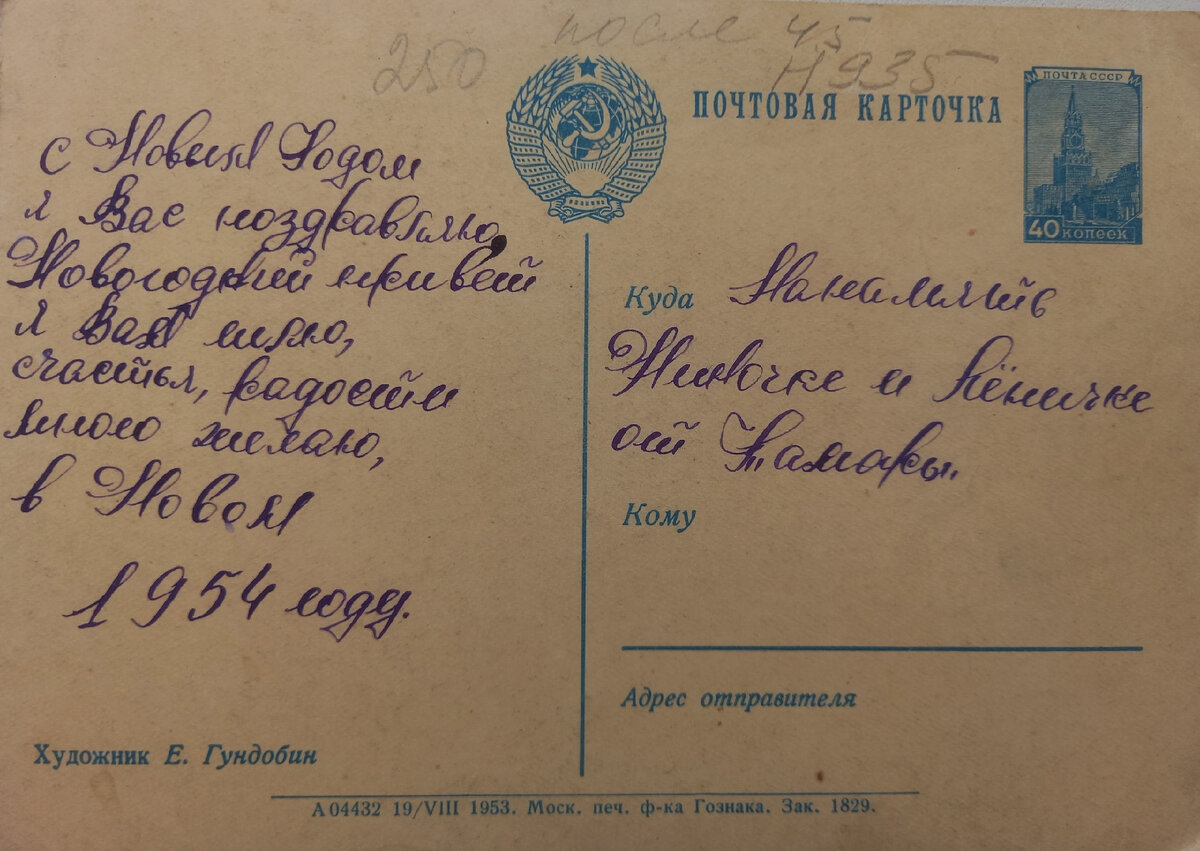 после 45
250
Н935
ПОЧТОВАЯ КАРТОЧКА
ПОЧТА СССР
40 КОПЕЕК
с Новым Годом
я Вас поздравляю,
Новогодний привет
я Вам шлю,
счастья, радости
много желаю,
в Новом
1954 году.
Куда На память
Ниночке и Лёничке
от Тамары.
Кому
Адрес отправителя
Художник Е. Гундобин
А 04432 19/VIII 1953. Моск. печ. ф-ка Гознака. Зак. 1829.